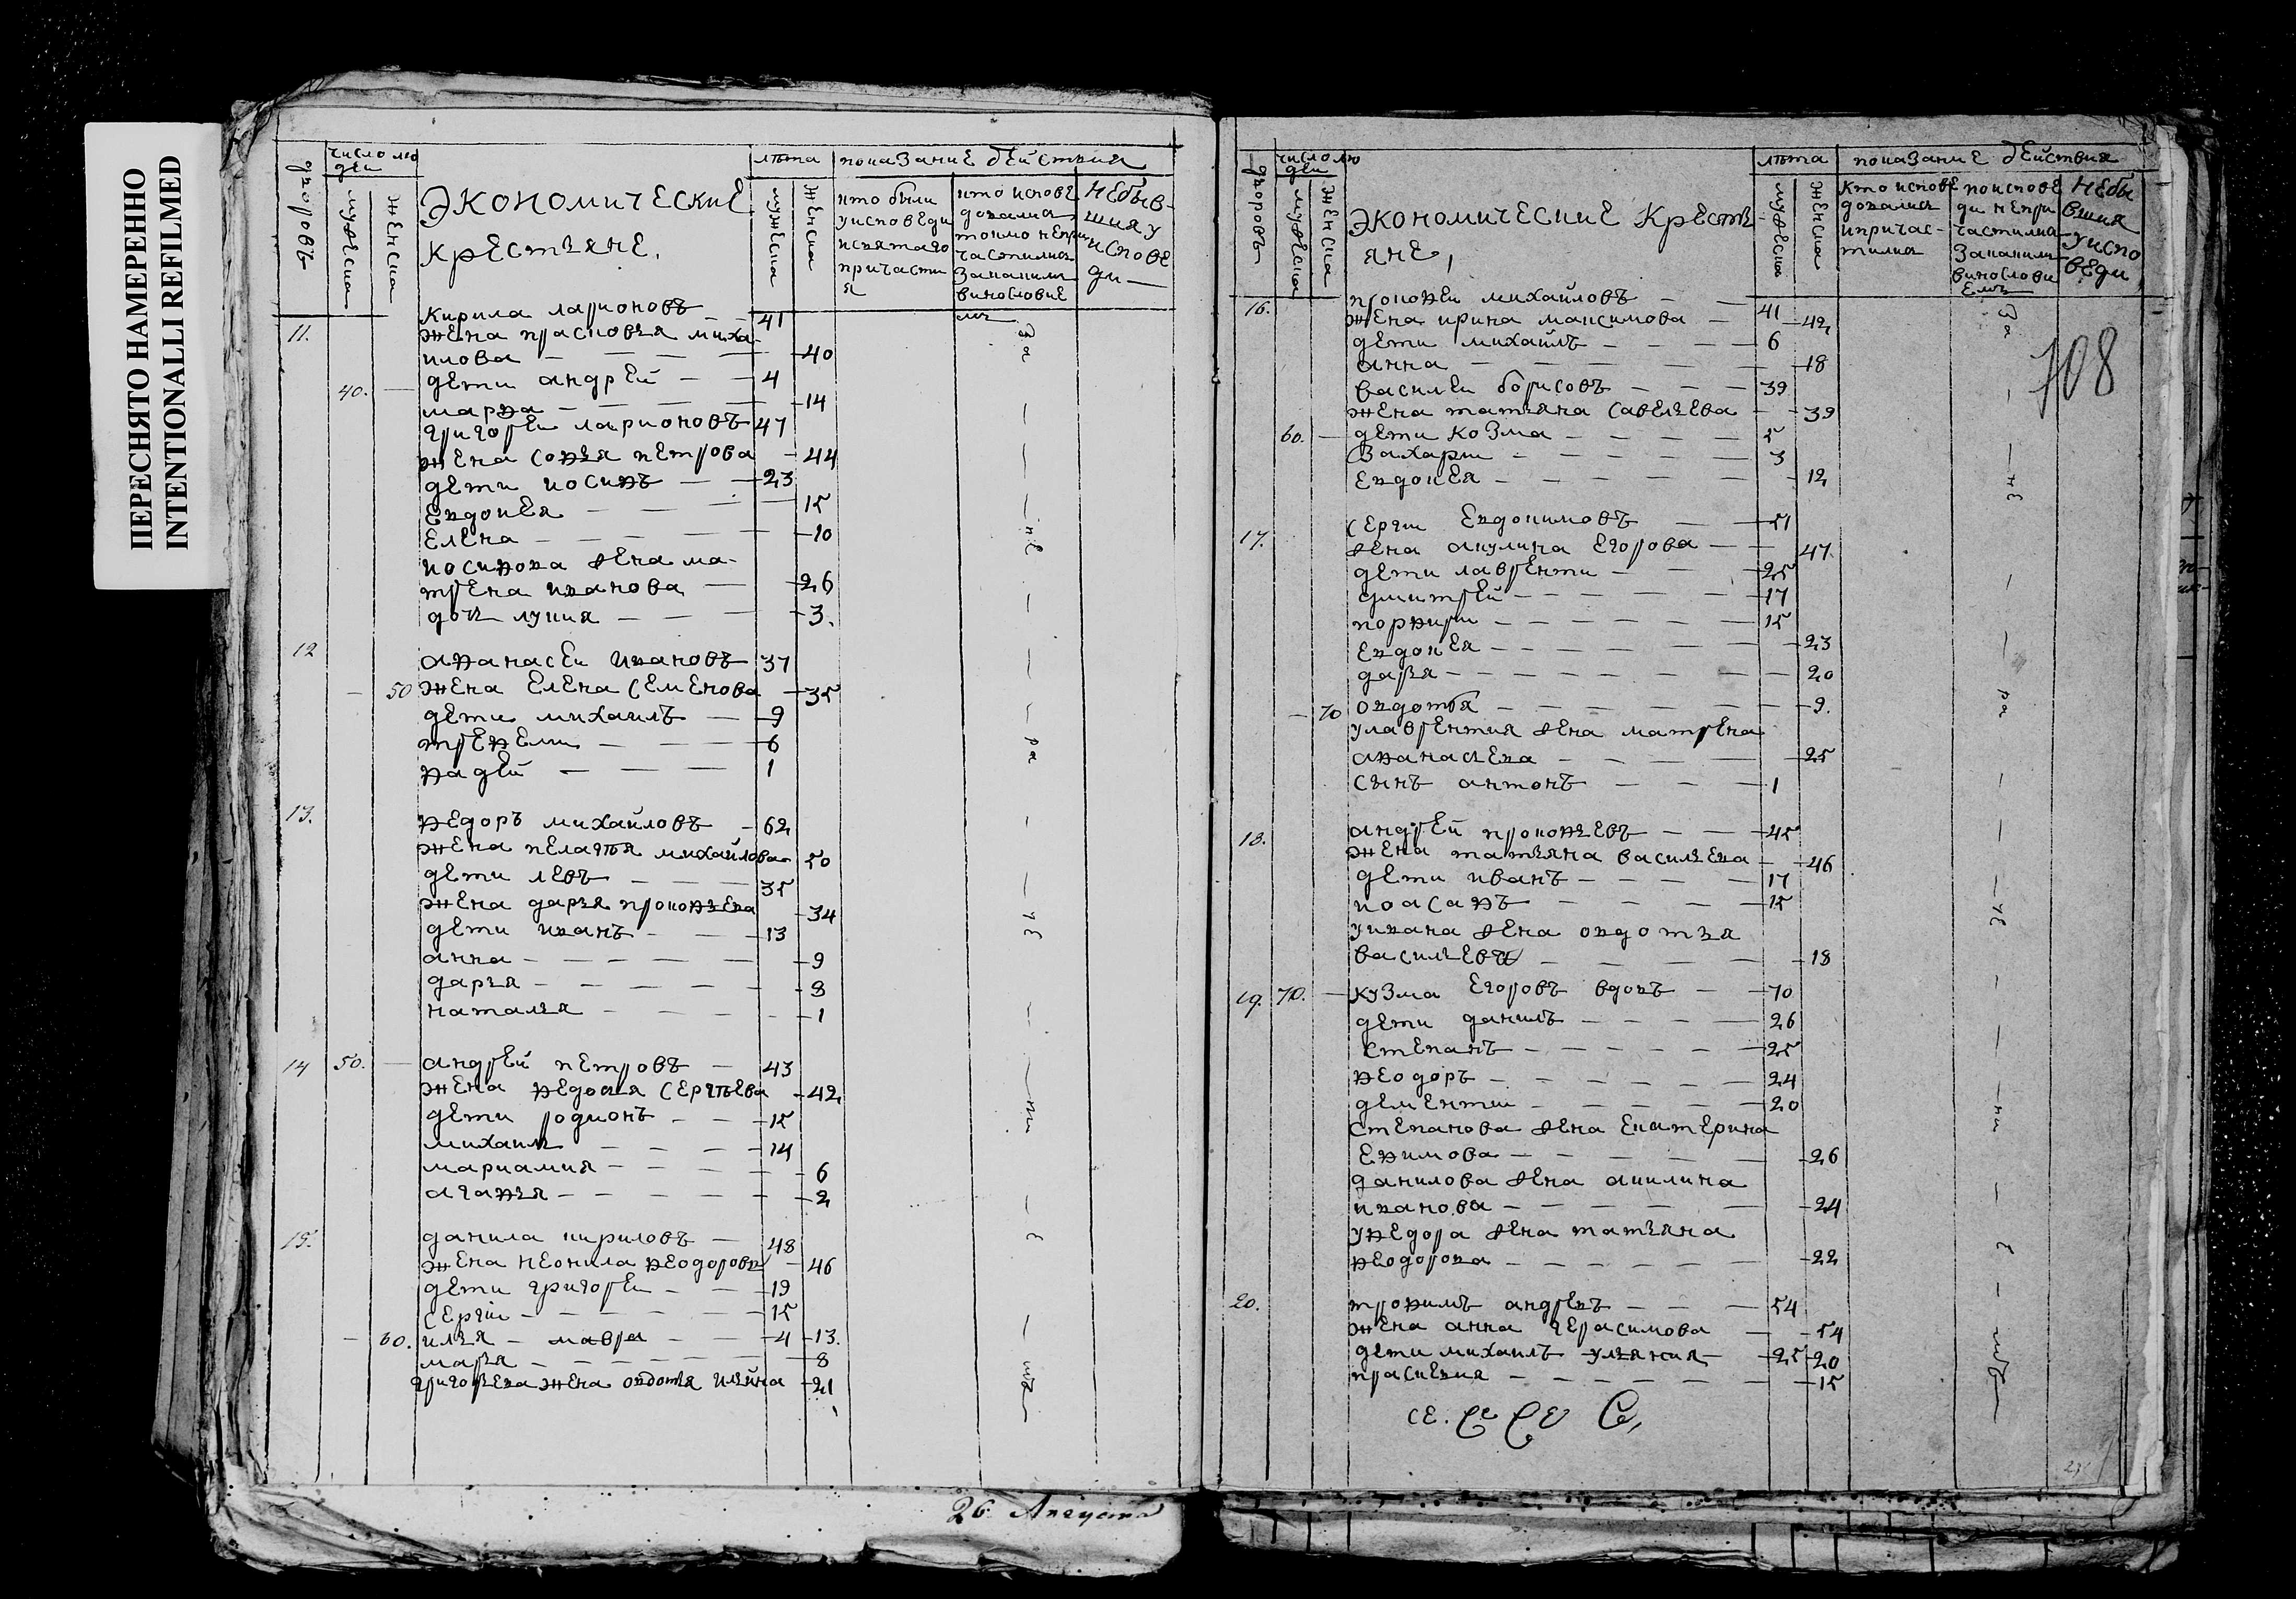 ПЕРЕСНЯТО НАМЕРЕННО
INTENTIONALLI REFILMED
дворовъ
число лю
деи
мужеска
женска
Экономическиε
крестьянε,
лѣта
мужеска
женска
показаниε дεйствия
кто были
у исповεди
и святаго
причасти
я
кто исповε
довался
токмо нεпри
частился
за каким
винословиε
мъ
нεбыв-
шия у
исповε
ди
11. Кирила ларионовъ 41
жена прасковья миха
илова 40
40. дети андрεй 4
марѳа 14
григорεи ларионовъ 47
жена соѳья пεтрова 44
дети иосиѳъ 23
Евдокεя 15
Елεна 10
иосиѳова жена ма-
трεна иванова 26
дочь лукия 3.
12 аѳанасεи ивановъ 37
50 жена Елεна сεмεнова 35
дети михаилъ 9
трεѳели 6
ѳадεй 1
13. ѳεдоръ михайловъ 62
жена пεлагѣя михайлова 50
дети лεвъ 35
жена дарья прокоѳьεва 34
дети иванъ 13
анна 9
дарья 8
наталья 1
14 50. андрεй пεтровъ 43
жена ѳεдосья сεргѣεва 42
дети родионъ 15
михаил 14
мариамия 6
агаѳья 2
15. данила кириловъ 48
жена нεонила ѳεодорова 46
дети григорεи 19
сεргiи 15
60. илья мавра 4 13.
марья 8
григорьεва жена овдотья ильина 21
за
нε
ра
чε
ни
ε
мъ
26 Августа
дворовъ
число лю
деи
мужеска
женска
Экономическиε крεсть
янε,
лѣта
мужеска
женска
показаниε дεйствия
кто исповε
довался
и причас-
тился
по исповε
ди нεпри
частился
за каким
винослови
εмъ
Нεбы
вшия
у испо
вεди
708
16. прокоѳεи михайловъ 41
жена ирина максимова 42
дети михайлъ 6
анна 18
василεи борисовъ 39
жена татьяна савεльεва 39
60. дети козма 5
Захарiи 3
Евдокεя 12
17. сεргiи Евдокимовъ 51
жена акулина Егорова 47.
дети лаврεнти 25
дмитрεй 17
порѳири 15
Евдокεя 23
дарья 20
70 овдотья 9.
у лаврεнтия жена матрεна
аѳанасьεва 25
сынъ антонъ 1
18. андрεй прокоѳьεвъ 45
жена татьяна васильεва 46
дети иванъ 17
иоасаѳъ 15
у ивана жена овдотья
васильεва 18
19. 70. кузма Егоровъ вдовъ 70
дети данилъ 26
стεпанъ 25
ѳεодоръ 24
дεмεнтии 20
стεпанова жена Екатεрина
Еѳимова 26
данилова жена акилина
иванова 24
у ѳεдора жена татьяна
ѳεодорова 22
20. троѳимъ андрεвъ 54
жена анна гεрасимова 54
дети михаилъ ульяния 25 20
прасковия 15
за
нε
ра
чε
ни
ε
мъ